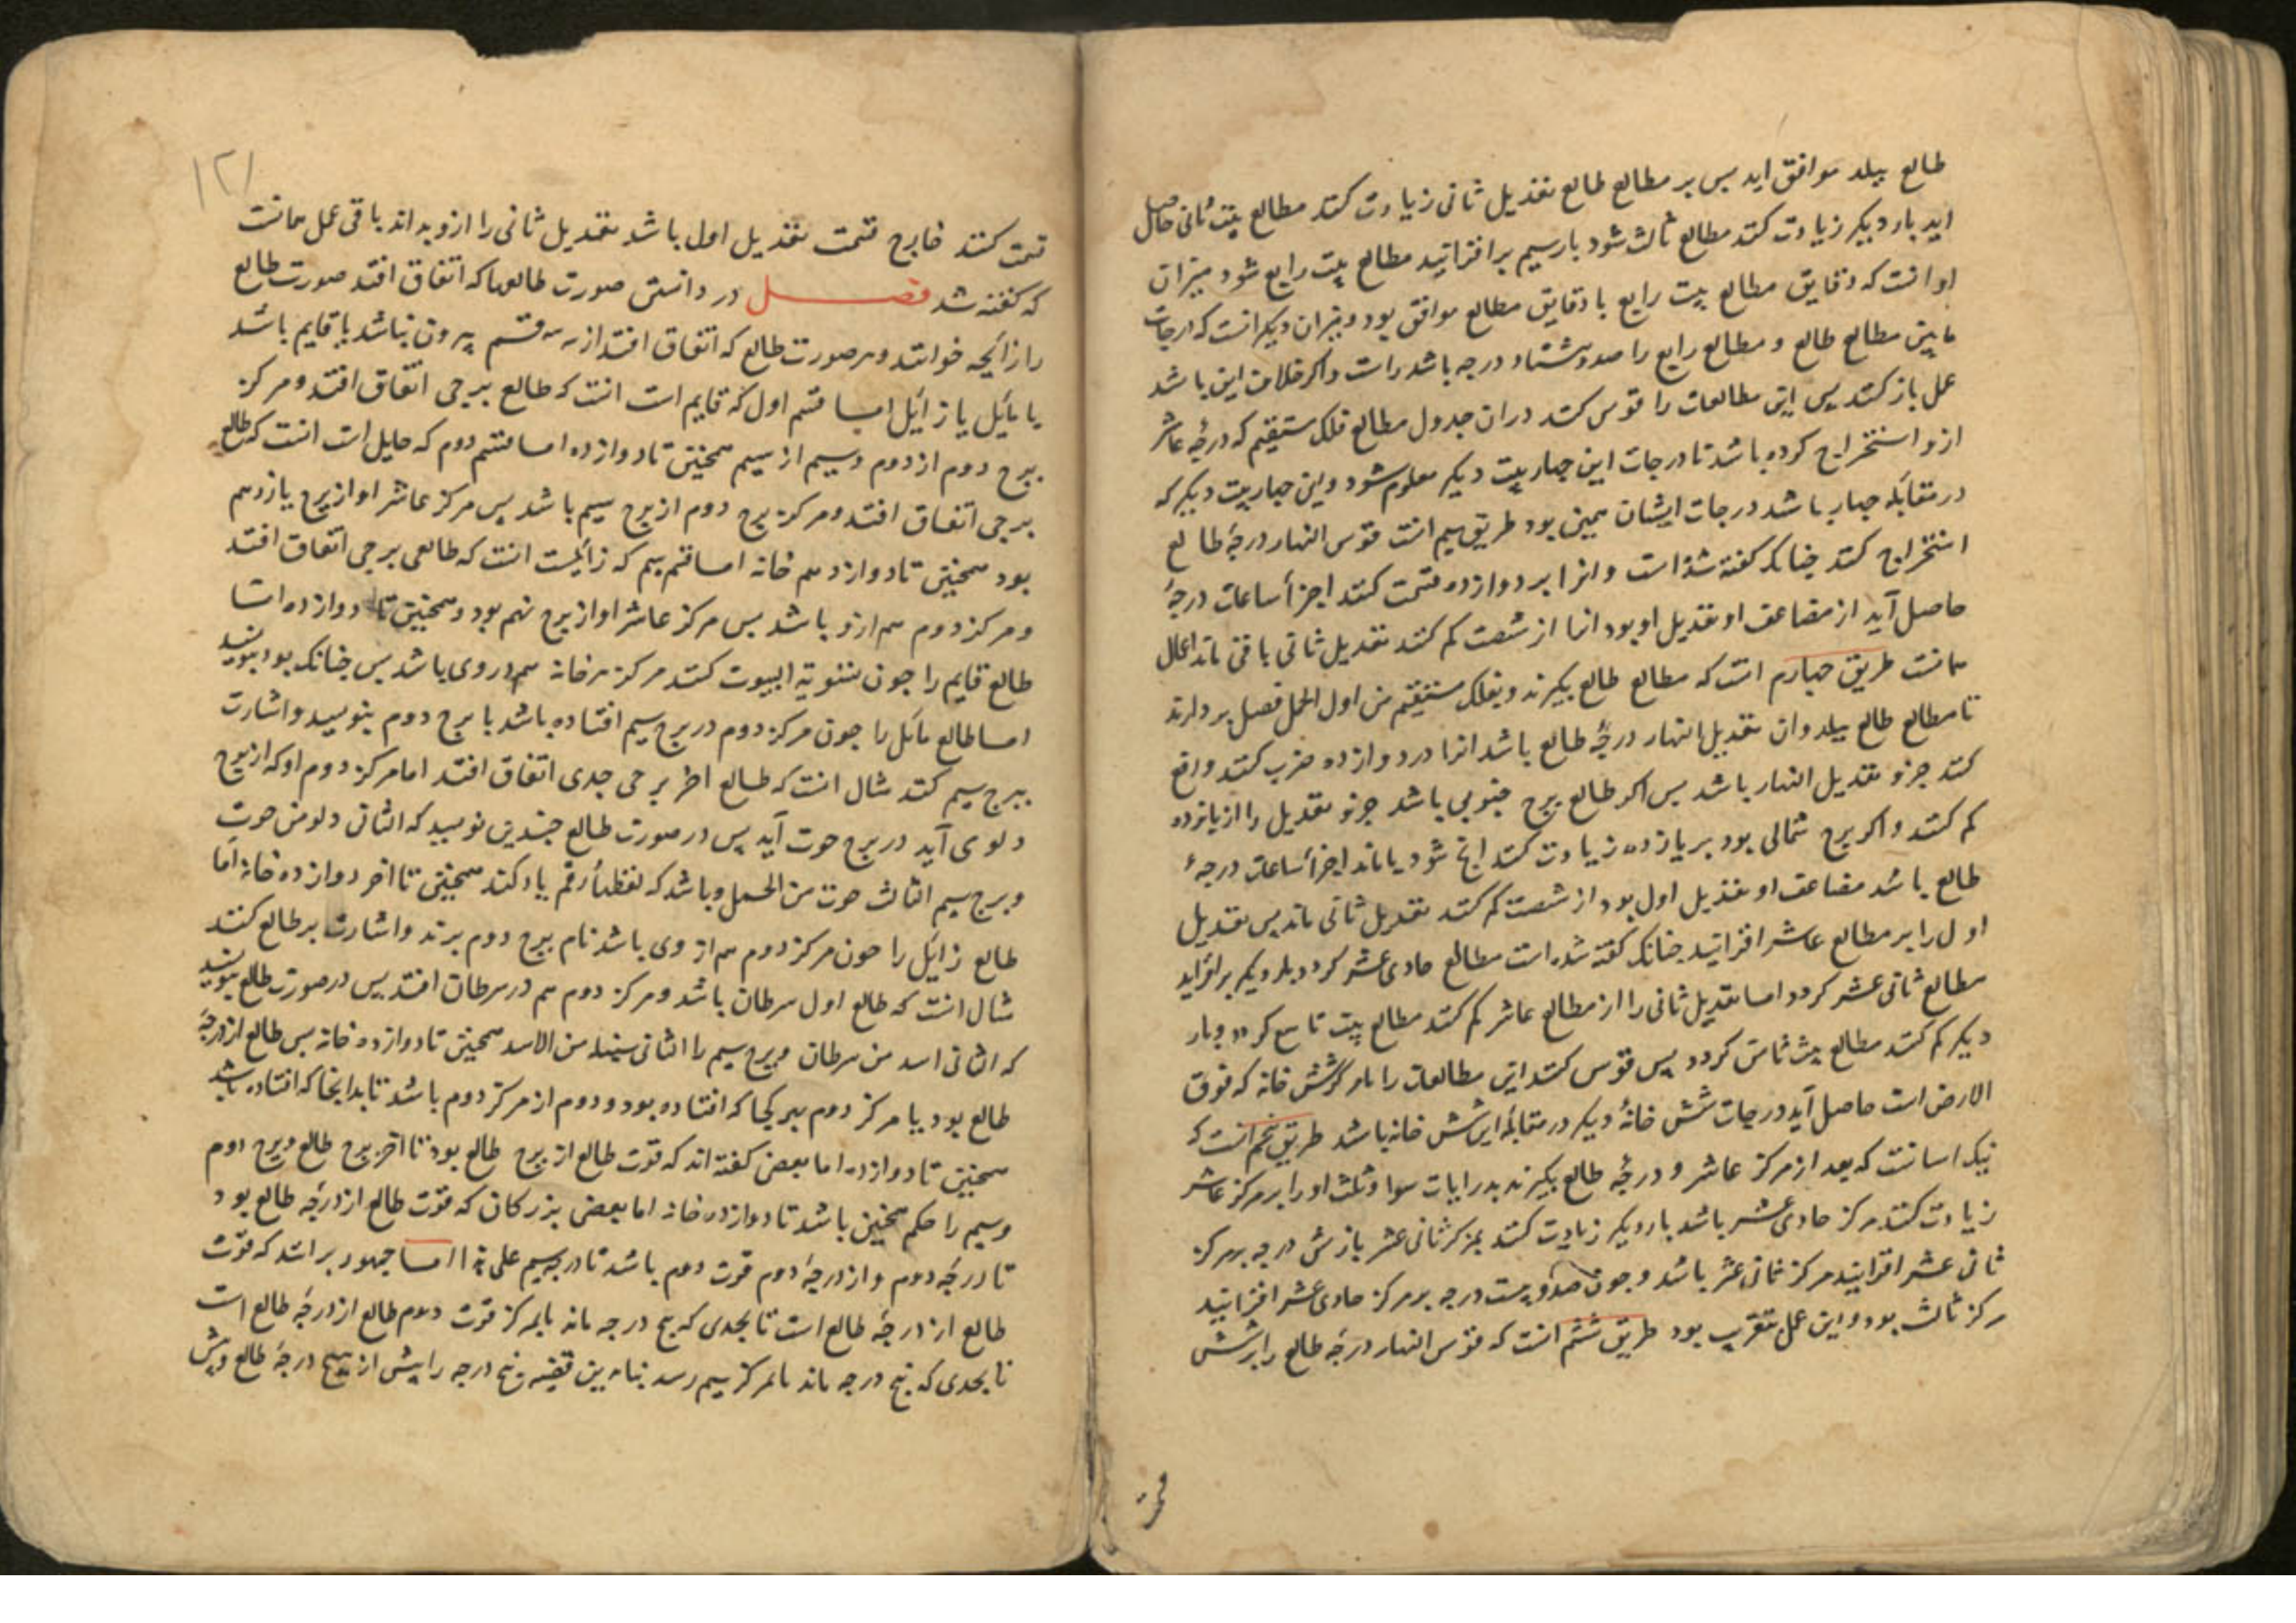 طالع ببلد موافق اید بس بر مطالع طالع تعدیل ثانی زیادت کنند مطالع بیت ثانی حاصل
اید بار دیکر زیادت کنند مطالع ثالث شود بار سیم بر افزایند مطالع بیت رابع شود میزان
او انست که دقایق مطالع بیت رابع با دقایق مطالع موافق بود و میزان دیکر انست که درجات
مابین مطالع طالع و مطالع رابع را صد و هشتاد درجه باشد راست و اکر خلاف این باشد
عمل باز کنند پس این مطالعات را قوس کنند در ان جدول مطالع فلک مستقیم که درجهٔ عاشر
ازو استخراج کرده باشد تا درجات این جهار بیت دیکر معلوم شود و این جهار بیت دیکر که
در مقابله جهار باشد درجات ایشان همین بود طریق سیم انست قوس النهار درجهٔ طالع
استخراج کنند جنانک کفته شده است و انرا بر دوازده قسمت کنند اجزأ ساعات درجهٔ
حاصل آید از مضاعف او تعدیل او بود انرا از شصت کم کنند تعدیل ثانی باقی ماند اعمال
همانست طریق جهارم انست که مطالع طالع بکیرند و بفلک مستقیم من اول الحمل فصل بردارند
تا مطالع طالع ببلد وان تعدیل النهار درجهٔ طالع باشد انرا در دوازده ضرب کنند واقع
کنند جزو تعدیل النهار باشد بس اکر طالع برج جنوبی باشد جزو تعدیل را از پانزده
کم کنند و اکر برج شمالی بود بر پانزده زیادت کنند انج شود یا ماند اجزأ ساعات درجهٔ
طالع باشد مضاعف او تعدیل اول بود از شصت کم کنند تعدیل ثانی ماند بس تعدیل
اول را بر مطالع عاشر افزایند جنانک کفته شده است مطالع حادی عشر کردد بار دیکر بر افزاید
مطالع ثانی عشر کردد اما تعدیل ثانی را از مطالع عاشر کم کنند مطالع بیت تاسع کردد و بار
دیکر کم کنند مطالع بیت ثامن کردد پس قوس کنند این مطالعات را شش خانه که فوق
الارض است حاصل آید درجات شش خانهٔ دیکر در مقابلهٔ این شش خانه باشد طریق پنجم انست که
نیک اسانست که بعد از مرکز عاشر و درجهٔ طالع بکیرند بدرجات سوا و ثلث او را بر مرکز عاشر
زیادت کنند مرکز حادی عشر باشد بار دیکر زیادت کنند مرکز ثانی عشر باز شش درجه بر مرکز
ثانی عشر افزایند مرکز ثانی عشر باشد و جون صد و بیست درجه بر مرکز حادی عشر افزایند
مرکز ثالث بود و این عمل بتقریب بود طریق ششم انست که قوس النهار درجهٔ طالع را بر شش
قسمت
۱۲۱
قسمت کنند خارج قسمت تعدیل اول باشد تعدیل ثانی را ازو بداند باقی عمل همانست
که کفته شد فصل در دانستن صورت طالعها که اتفاق افتد صورت طالع
را زایجه خوانند و هر صورت طالع که اتفاق افتد از سه قسم بیرون نباشد یا قایم باشد
یا مایل یا زائل اما قسم اول که قایم است انست که طالع ببرجی اتفاق افتد و مرکز
برج دوم از دوم و سیم از سیم همجنین تا دوازده اما قسم دوم که مایل است انست که طالع
ببرجی اتفاق افتد و مرکز برج دوم از برج سیم باشد پس مرکز عاشر او از برج یازدهم
بود همجنین تا دوازدهم خانه اما قسم سیم که زائلست انست که طالعی ببرجی اتفاق افتد
و مرکز دوم هم ازو باشد بس مرکز عاشر او از برج نهم بود و همجنین تا دوازده اما
طالع قایم را جون تسویة البیوت کنند مرکز هر خانه هم در وی باشد بس جنانک بود بنویسد
اما طالع مایل را جون مرکز دوم در برج سیم افتاده باشد با برج دوم بنویسد و اشارت
ببرج سیم کنند مثال انست که طالع اخر برجی جدی اتفاق افتد اما مرکز دوم او که از برج
دلو می آید در برج حوت آید پس در صورت طالع جنین نویسد که الثانی دلو من حوت
و برج سیم الثالث حوت من الحمل و باشد که لفظ را رقم یاد کند همجنین تا اخر دوازده خانه اما
طالع زائل را جون مرکز دوم هم از وی باشد نام برج دوم برند و اشارت بر طالع کنند
مثال انست که طالع اول سرطان باشد و مرکز دوم هم در سرطان افتد پس در صورت طالع بنویسد
که الثانی اسد من سرطان و برج سیم را الثانی سنبله من الاسد همجنین تا دوازده خانه بس طالع از درجهٔ
طالع بود یا مرکز دوم بهر کجا که افتاده بود و دوم از مرکز دوم باشد تا بدانجا که افتاده باشد
همجنین تا دوازده اما بعضی کفته اند که قوت طالع از برج طالع بود تا اخر برج طالع و برج دوم
و سیم را حکم همجنین باشد تا دوازده خانه اما بعضی بزرکان که قوت طالع از درجهٔ طالع بود
تا درجهٔ دوم و از درجهٔ دوم قوت دوم باشد تا درجهٔ سیم علی هذا اما جمهور برانند که قوت
طالع از درجهٔ طالع است تا بحدی که پنج درجه ماند بمرکز قوت دوم طالع از درجهٔ طالع است
تا بحدی که پنج درجه ماند تا مرکز سیم رسد بنابرین قضیه پنج درجه را پیش از پنج درجهٔ طالع و پیش